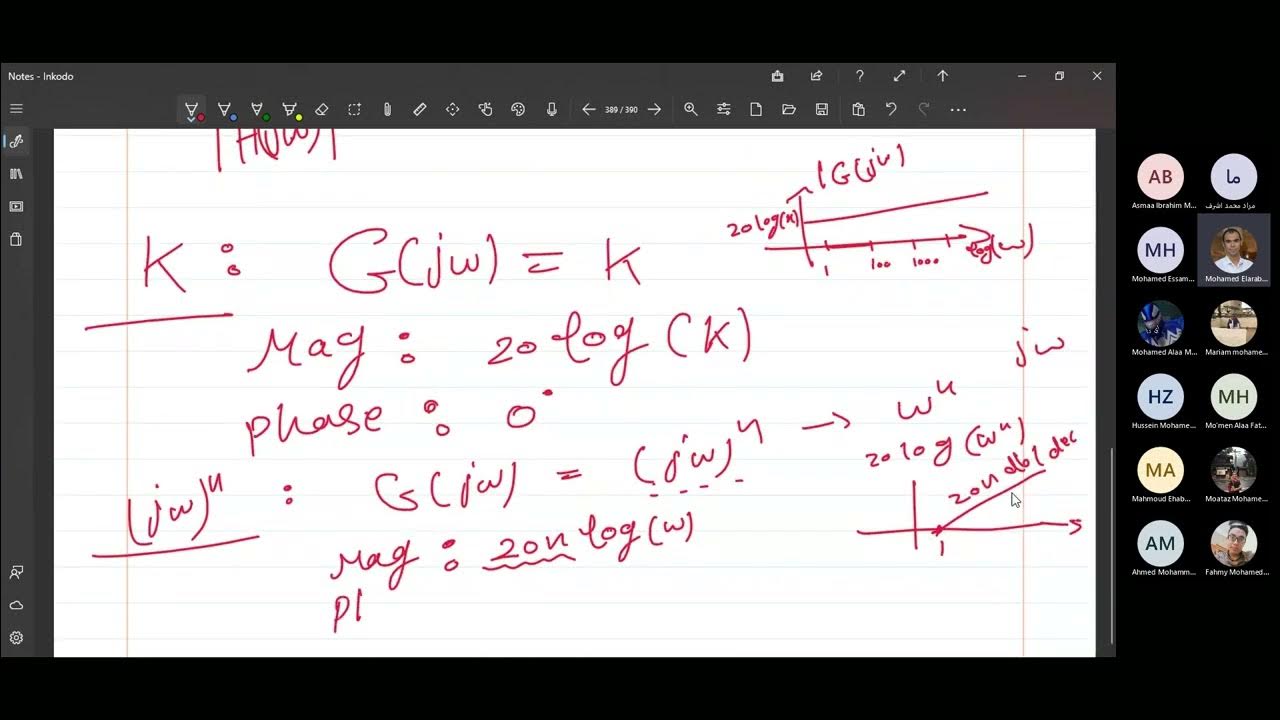 Notes - Inkodo
389 / 390
|H(jω)|
|G(jω)
20 log(K)
1 100 1000 log(ω)
K : G(jω) = K
Mag : 20 log (K)
phase : 0°
jω
(jω)ⁿ : G(jω) = (jω)ⁿ → ωⁿ
20 log (ωⁿ)
20n db/dec
1
Mag : 20n log(ω)
Ph
AB
Asmaa Ibrahim M...
ما
مراد محمد اشرف
MH
Mohamed Essam...
Mohamed Elarab...
Mohamed Alaa M...
Mariam mohame...
HZ
Hussein Mohame...
MH
Mo'men Alaa Fat...
MA
Mahmoud Ehab...
Moataz Mohame...
AM
Ahmed Mohamm...
Fahmy Mohamed...